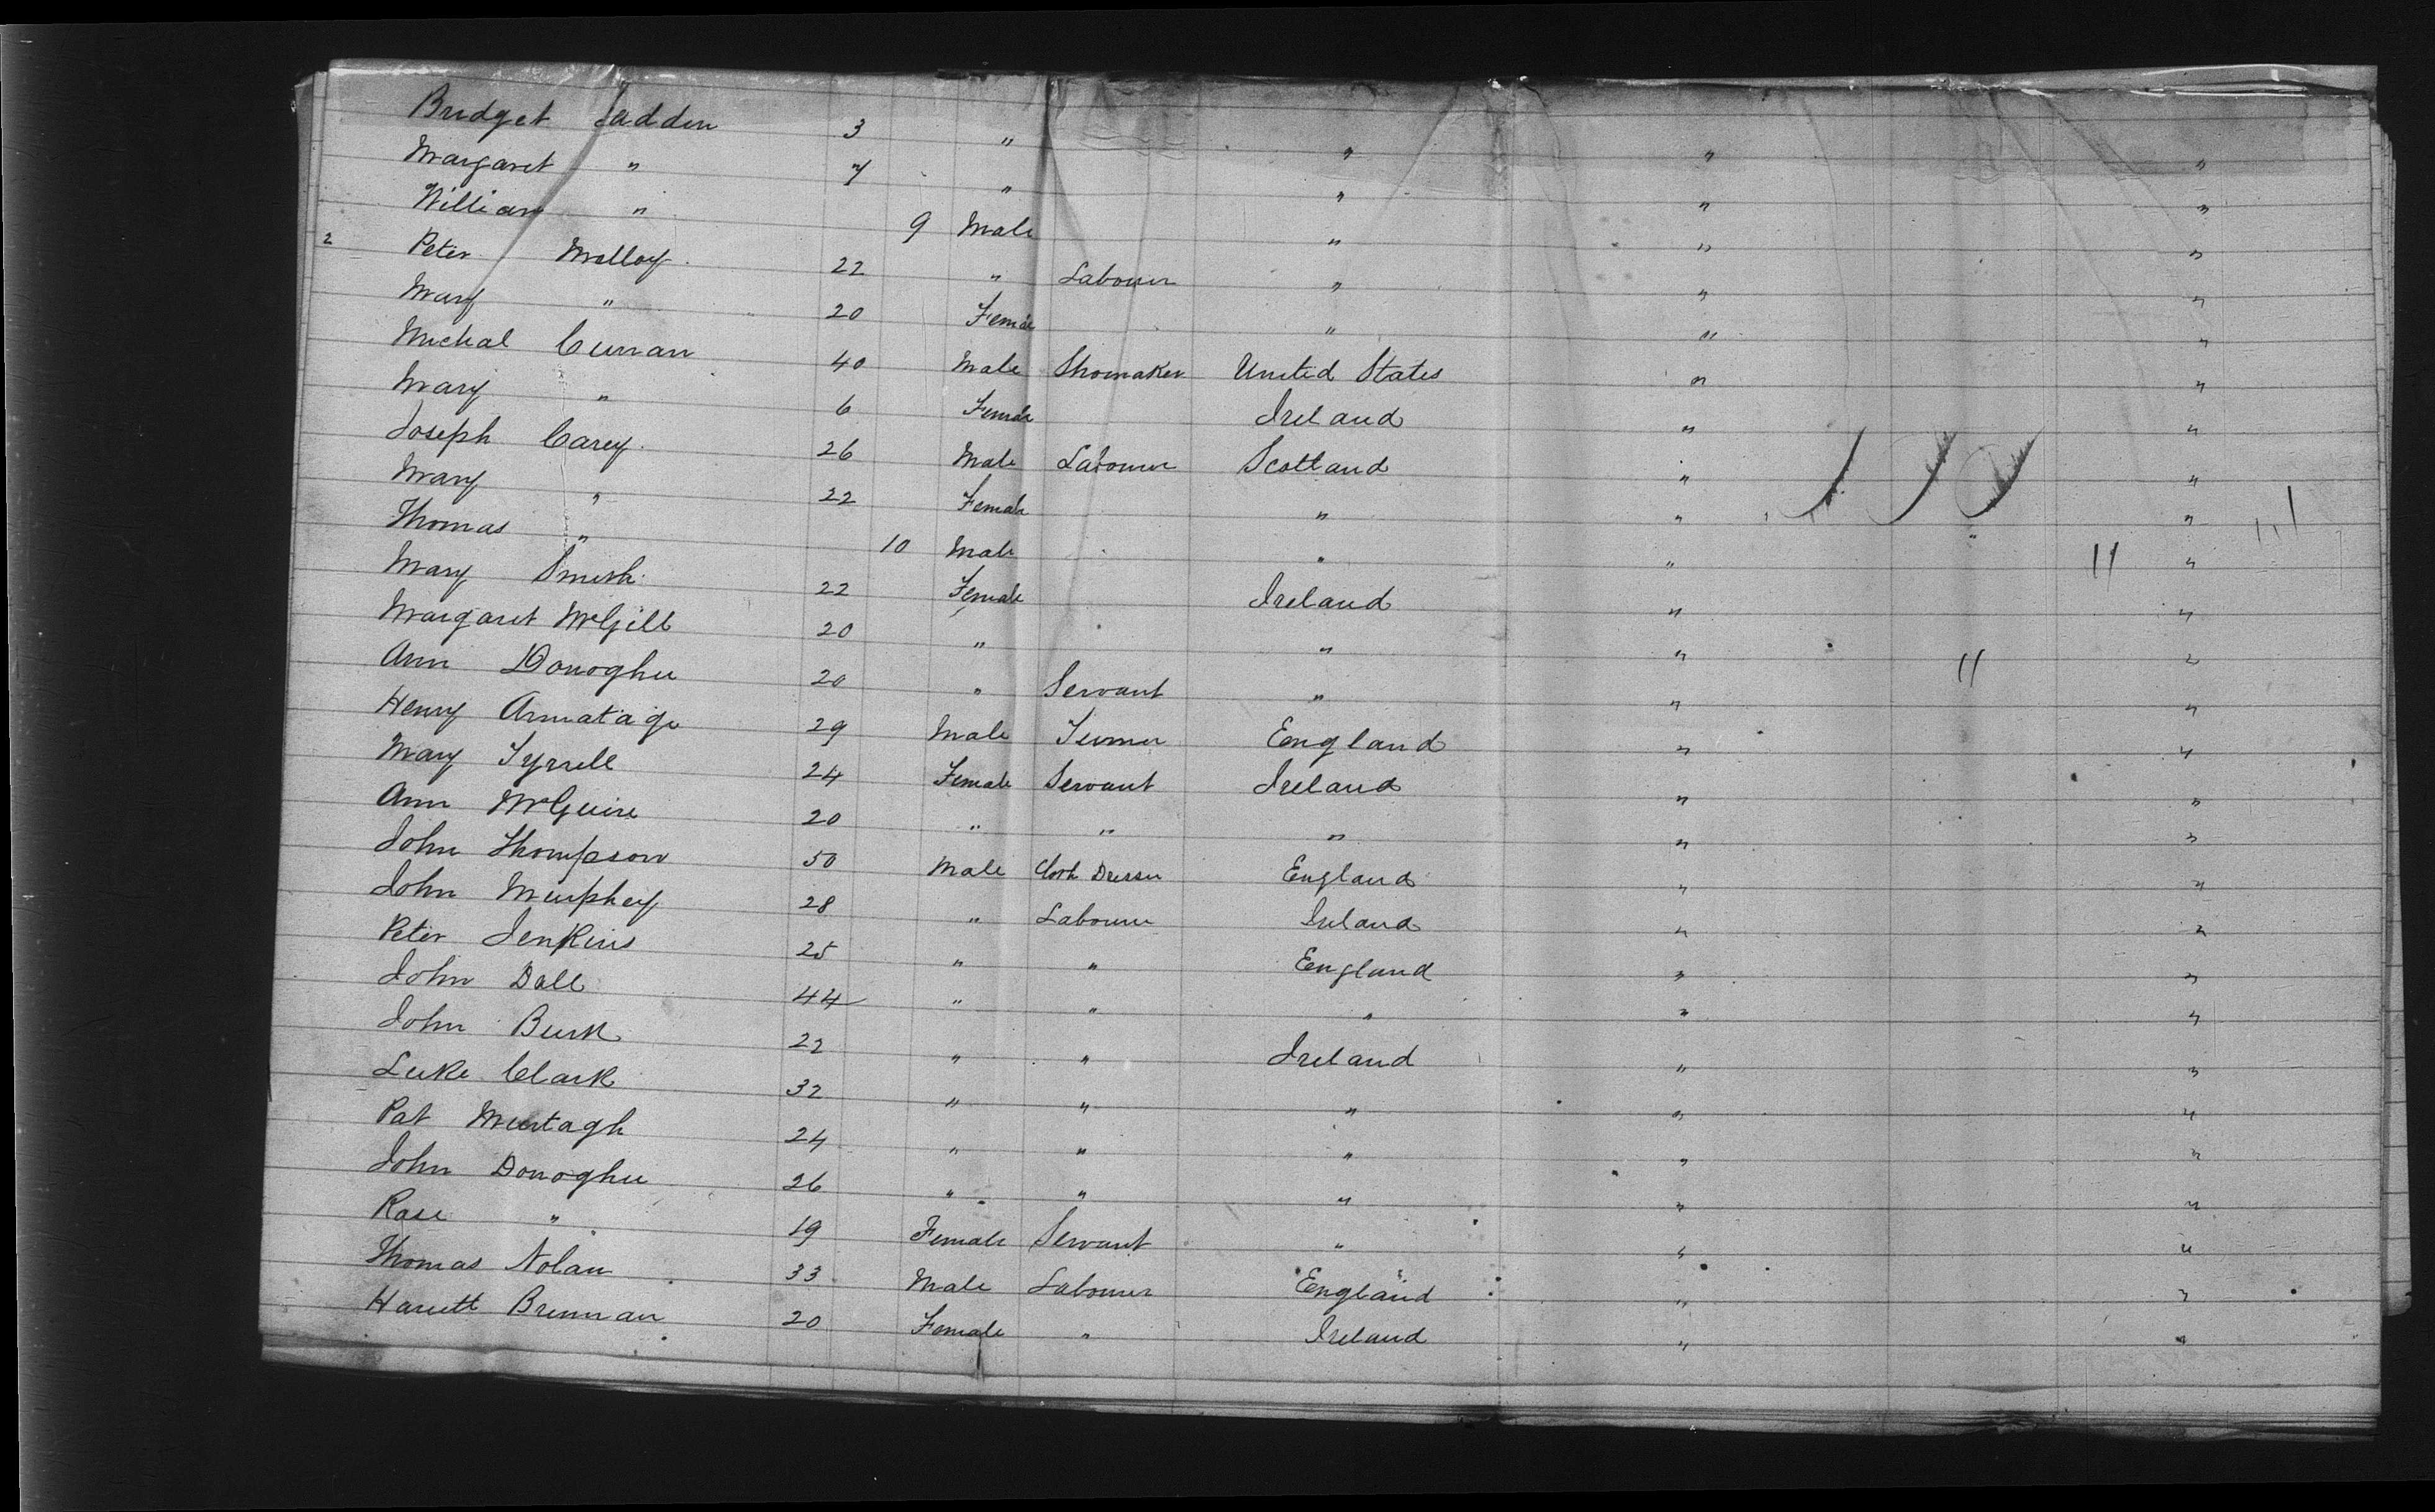 Bridget Cadden 3 " " " "
Margaret " 7 " " " "
William " 9 Male " " "
2 Peter Molloy 22 " Labourer " " "
Mary " 20 Female " " "
Michal Curran 40 Male Shomaker United States " "
Mary " 6 Female Ireland " "
Joseph Carey 26 Male Labourer Scotland " "
Mary " 22 Female " " "
Thomas " 10 Male " " " "
Mary Smith 22 Female Ireland " "
Margaret McGill 20 " " " "
Ann Donoghue 20 " Servant " " "
Henry Armatage 29 Male England " "
Mary Tyrrell 24 Female Servant Ireland " "
Ann McGuire 20 " " " " "
John Thompson 50 Male Cloth Dresser England " "
John Murphey 28 " Labourer Ireland " "
Peter Jenkins 25 " " England " "
John Dall 44 " " " " "
John Burk 22 " " Ireland " "
Luke Clark 32 " " " " "
Pat Murtagh 24 " " " " "
John Donoghue 26 " " " " "
Rose " 19 Female Servant " " "
Thomas Nolan 33 Male Labourer England " "
Hariett Brennan 20 Female " Ireland " "